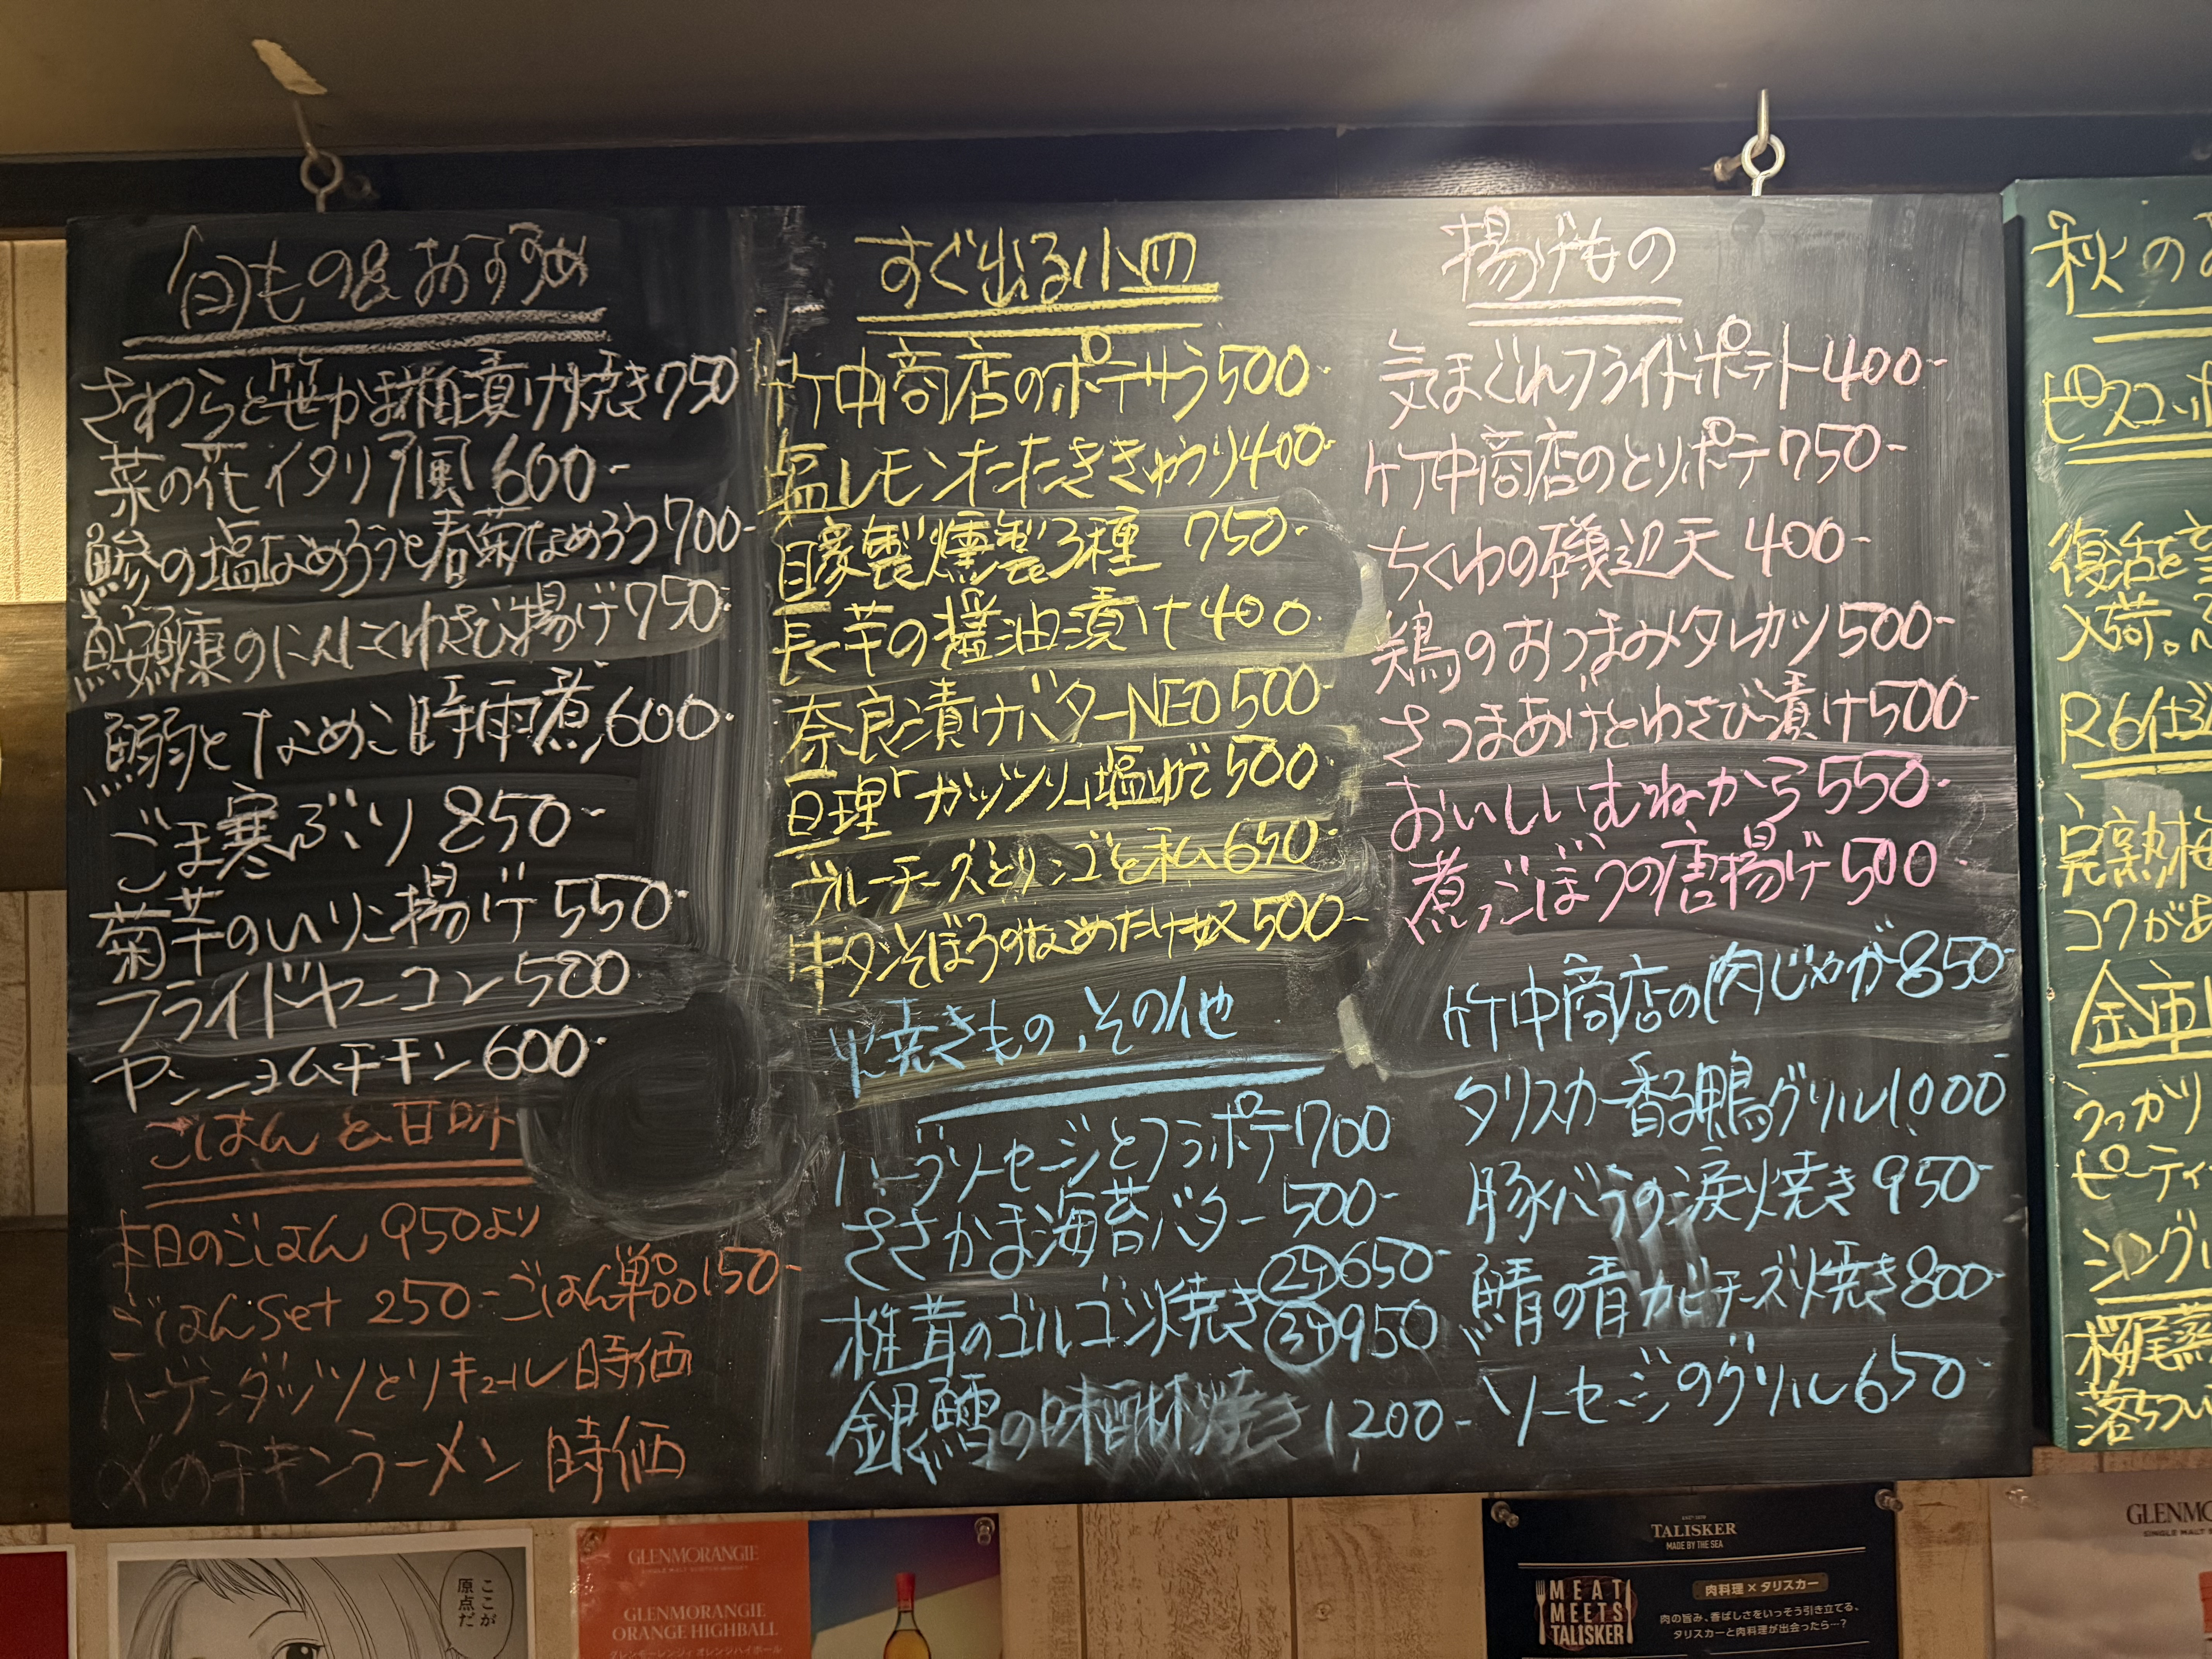 旬もの&おすすめ
さわらと笹かま粕漬け焼き750
菜の花イタリア風 600-
鯵の塩なめろうと春菊なめろう700-
鮟鱇のにんにくわさび揚げ750-
鰯となめこ時雨煮600-
ごま寒ぶり 850-
菊芋のいりこ揚げ550-
フライドヤーコン500
ヤンニョムチキン600-
ごはんと甘味
本日のごはん 950より
ごはんset 250-ごはん単品150-
ハーゲンダッツとリキュール 時価
〆のチキンラーメン 時価
すぐ出る小皿
竹中商店のポテサラ500-
塩レモンたたききゅうり400-
自家製燻製3種 750-
長芋の醤油漬け400-
奈良漬けバターNEO500-
亘理「ガッツリ」塩ゆで500-
ブルーチーズとリンゴと私650-
牛タンそぼろのなめたけ奴500-
焼きもの、その他
ハーブソーセージとフラポテ700
ささかま海苔バター 500-
椎茸のゴルゴンゾ焼き②ケ650-
③ケ950
銀鱈の味醂焼き 1200-
揚げもの
気まぐれフライドポテト400-
竹中商店のとりポテ750-
ちくわの磯辺天 400-
鶏のおつまみタレカツ500-
さつまあげとわさび漬け500-
おいしいむねから550-
煮ごぼうの唐揚げ500-
竹中商店の肉じゃが850-
タリスカー香る鴨グリル1000-
豚バラの涙焼き 950-
鯖の青カビチーズ焼き800-
ソーセージのグリル650-
秋の
ピスコ
復活を
入荷。
R6仕込
完熟梅
コクがあ
金市
うっかり
ピーティ
シングル
桜尾蒸
落ちつい
ここが
原点だ
GLENMORANGIE
SINGLE MALT SCOTCH WHISKY
GLENMORANGIE
ORANGE HIGHBALL
グレンモーレンジィ オレンジハイボール
TALISKER
MADE BY THE SEA
MEAT
MEETS
TALISKER
肉料理×タリスカー
肉の旨み、香ばしさをいっそう引き立てる、
タリスカーと肉料理が出会ったら…?
GLENMO
SINGLE MALT